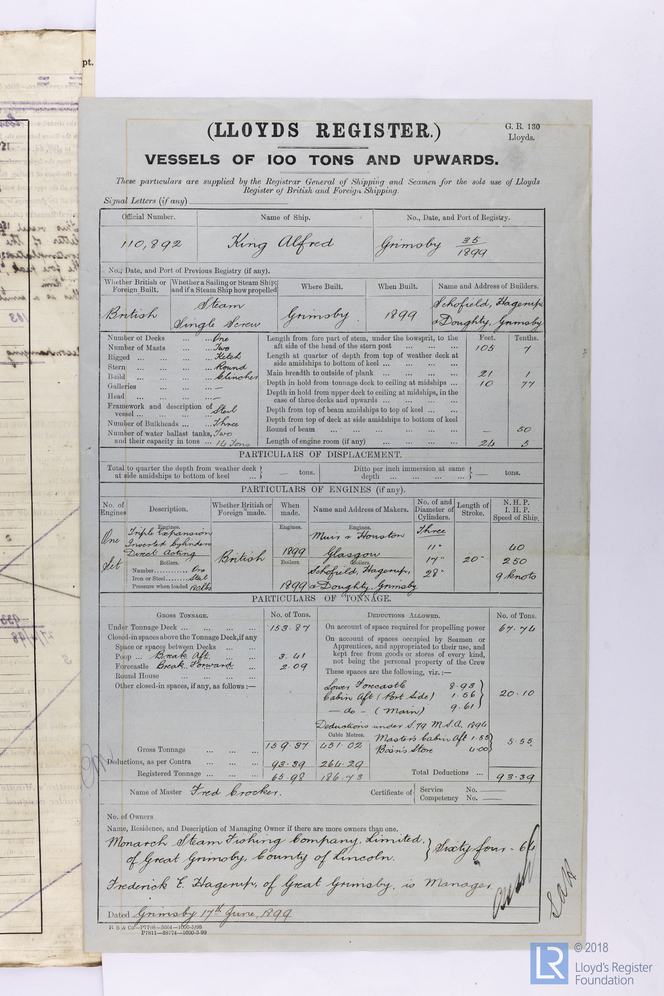 pt.
(LLOYDS REGISTER.)
G. R. 130
Lloyds.
VESSELS OF 100 TONS AND UPWARDS.
These particulars are supplied by the Registrar General of Shipping and Seamen for the sole use of Lloyds
Register of British and Foreign Shipping.
Signal Letters (if any)
Official Number. Name of Ship. No., Date, and Port of Registry.
110,892 King Alfred Grimsby 35/1899
No., Date, and Port of Previous Registry (if any).
Whether British or Foreign Built. Whether a Sailing or Steam Ship; and if a Steam Ship how propelled Where Built. When Built. Name and Address of Builders.
British Steam Single Screw Grimsby 1899 Schofield, Hagerup, & Doughty, Grimsby
Number of Decks ... ... One
Number of Masts ... ... Two
Rigged ... ... ... Ketch
Stern ... ... ... Round
Build ... ... ... Clincher
Galleries ... ... —
Head ... ... ... —
Framework and description of vessel ... ... ... Steel
Number of Bulkheads ... Three
Number of water ballast tanks, Two
and their capacity in tons ... 14 Tons
Feet. Tenths.
Length from fore part of stem, under the bowsprit, to the
aft side of the head of the stern post ... ... ... 105 7
Length at quarter of depth from top of weather deck at
side amidships to bottom of keel ... ... ...
Main breadth to outside of plank ... ... ... 21 1
Depth in hold from tonnage deck to ceiling at midships ... 10 77
Depth in hold from upper deck to ceiling at midships, in the
case of three decks and upwards ... ... ...
Depth from top of beam amidships to top of keel ... ...
Depth from top of deck at side amidships to bottom of keel
Round of beam ... ... ... — 50
Length of engine room (if any) ... ... ... 24 5
PARTICULARS OF DISPLACEMENT.
Total to quarter the depth from weather deck at side amidships to bottom of keel } — tons.
Ditto per inch immersion at same depth ... ... ... } — tons.
PARTICULARS OF ENGINES (if any).
No. of Engines Description. Whether British or Foreign made. When made. Name and Address of Makers. No. of and Diameter of Cylinders. Length of Stroke. N. H. P. I. H. P. Speed of Ship.
One Set
Engines.
Triple Expansion
Inverted Cylinders
Direct Acting
Boilers.
Number............ One
Iron or Steel........ Steel
Pressure when loaded
British
Engines.
1899
Boilers
1899
Engines.
Muir & Houston
Glasgow
Boilers.
Schofield, Hagerup,
& Doughty, Grimsby
Three
11"
17"
28"
20"
40
250
9 knots
PARTICULARS OF TONNAGE.
GROSS TONNAGE. No. of Tons. DEDUCTIONS ALLOWED. No. of Tons.
Under Tonnage Deck ... ... 153.87
Closed-in spaces above the Tonnage Deck, if any
Space or spaces between Decks ...
Poop ... Break Aft. ... 3.41
Forecastle Break Forward ... 2.09
Round House ... ... ...
Other closed-in spaces, if any, as follows:—
On account of space required for propelling power 67.74
On account of spaces occupied by Seamen or
Apprentices, and appropriated to their use, and
kept free from goods or stores of every kind,
not being the personal property of the Crew
These spaces are the following, viz.:—
Lower Forecastle 8.93
Cabin Aft (Port Side) 1.56
— do — (Main) 9.61
20.10
Deductions under S.79 M.S.A. 1894
Cubic Metres.
Master's Cabin Aft 1.55
Bosn's Store 4.00
5.55
Gross Tonnage ... ... ... 159.37 451.02
Deductions, as per Contra ... 93.39 264.29
Registered Tonnage ... ... 65.98 186.73
Total Deductions ... 93.39
Name of Master Fred Crocker.
Certificate of { Service No. —
Competency No. —
No. of Owners
Name, Residence, and Description of Managing Owner if there are more owners than one.
Monarch Steam Fishing Company, Limited,
of Great Grimsby, County of Lincoln. } Sixty four - 64
Frederick E. Hagerup, of Great Grimsby, is Manager.
Dated Grimsby 17th June, 1899
© 2018
LR
Lloyd's Register
Foundation